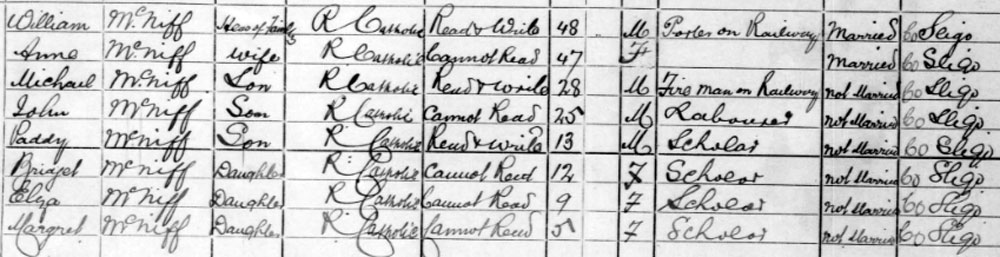 William McNiff Head of Family R Catholic Read & Write 48 M Porter on Railway Married Co Sligo
Anne McNiff Wife R Catholic Cannot Read 47 F Married Co Sligo
Michael McNiff Son R Catholic Read & write 28 M Fire man on Railway not Married Co Sligo
John McNiff Son R Catholic Cannot Read 25 M Labourer not Married Co Sligo
Paddy McNiff Son R Catholic Read & write 13 M Scholar not Married Co Sligo
Bridget McNiff Daughter R Catholic Cannot Read 12 F Scholar not Married Co Sligo
Eliza McNiff Daughter R Catholic Cannot Read 9 F Scholar not Married Co Sligo
Margret McNiff Daughter R Catholic Cannot Read 5 F Scholar not Married Co Sligo